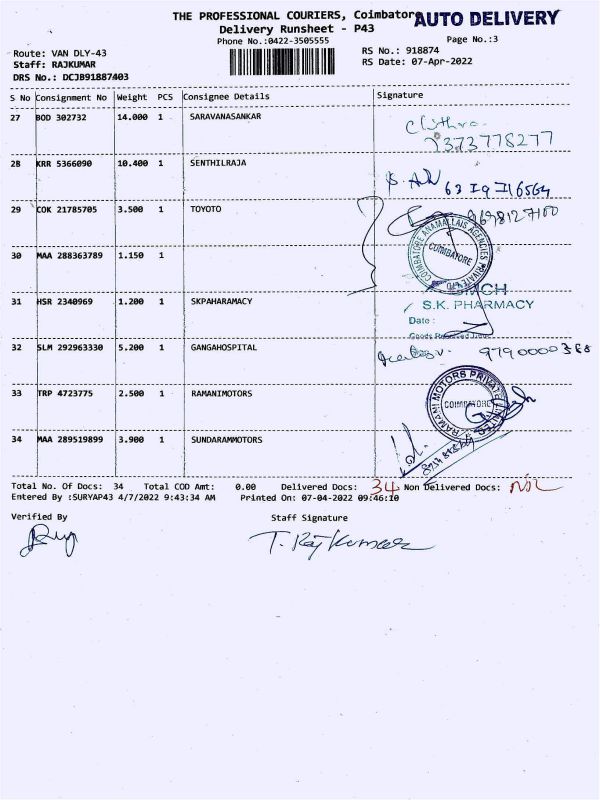 THE PROFESSIONAL COURIERS, Coimbator
AUTO DELIVERY
Delivery Runsheet - P43
Phone No.:0422-3505555
Page No.:3
Route: VAN DLY-43
RS No.: 918874
Staff: RAJKUMAR
RS Date: 07-Apr-2022
DRS No.: DCJB91887403
S No Consignment No Weight PCS Consignee Details Signature
27 BOD 302732 14.000 1 SARAVANASANKAR
7373778277
28 KRR 5366090 10.400 1 SENTHILRAJA
29 COK 21785705 3.500 1 TOYOTO
9698127100
COIMBATORE ANAMALLAIS AGENCIES PRIVATE LTD
COIMBATORE
30 MAA 288363789 1.150 1
31 HSR 2340969 1.200 1 SKPAHARAMACY
S.K. PHARMACY
Date :
Goods Received
32 SLM 292963330 5.200 1 GANGAHOSPITAL
9790000368
33 TRP 4723775 2.500 1 RAMANIMOTORS
RAMANI MOTORS PRIVATE LIMITED
COIMBATORE
34 MAA 289519899 3.900 1 SUNDARAMMOTORS
Total No. Of Docs: 34 Total COD Amt: 0.00 Delivered Docs: 34 Non Delivered Docs: NIL
Entered By :SURYAP43 4/7/2022 9:43:34 AM Printed On: 07-04-2022 09:46:10
Verified By Staff Signature
T. Rajkumar